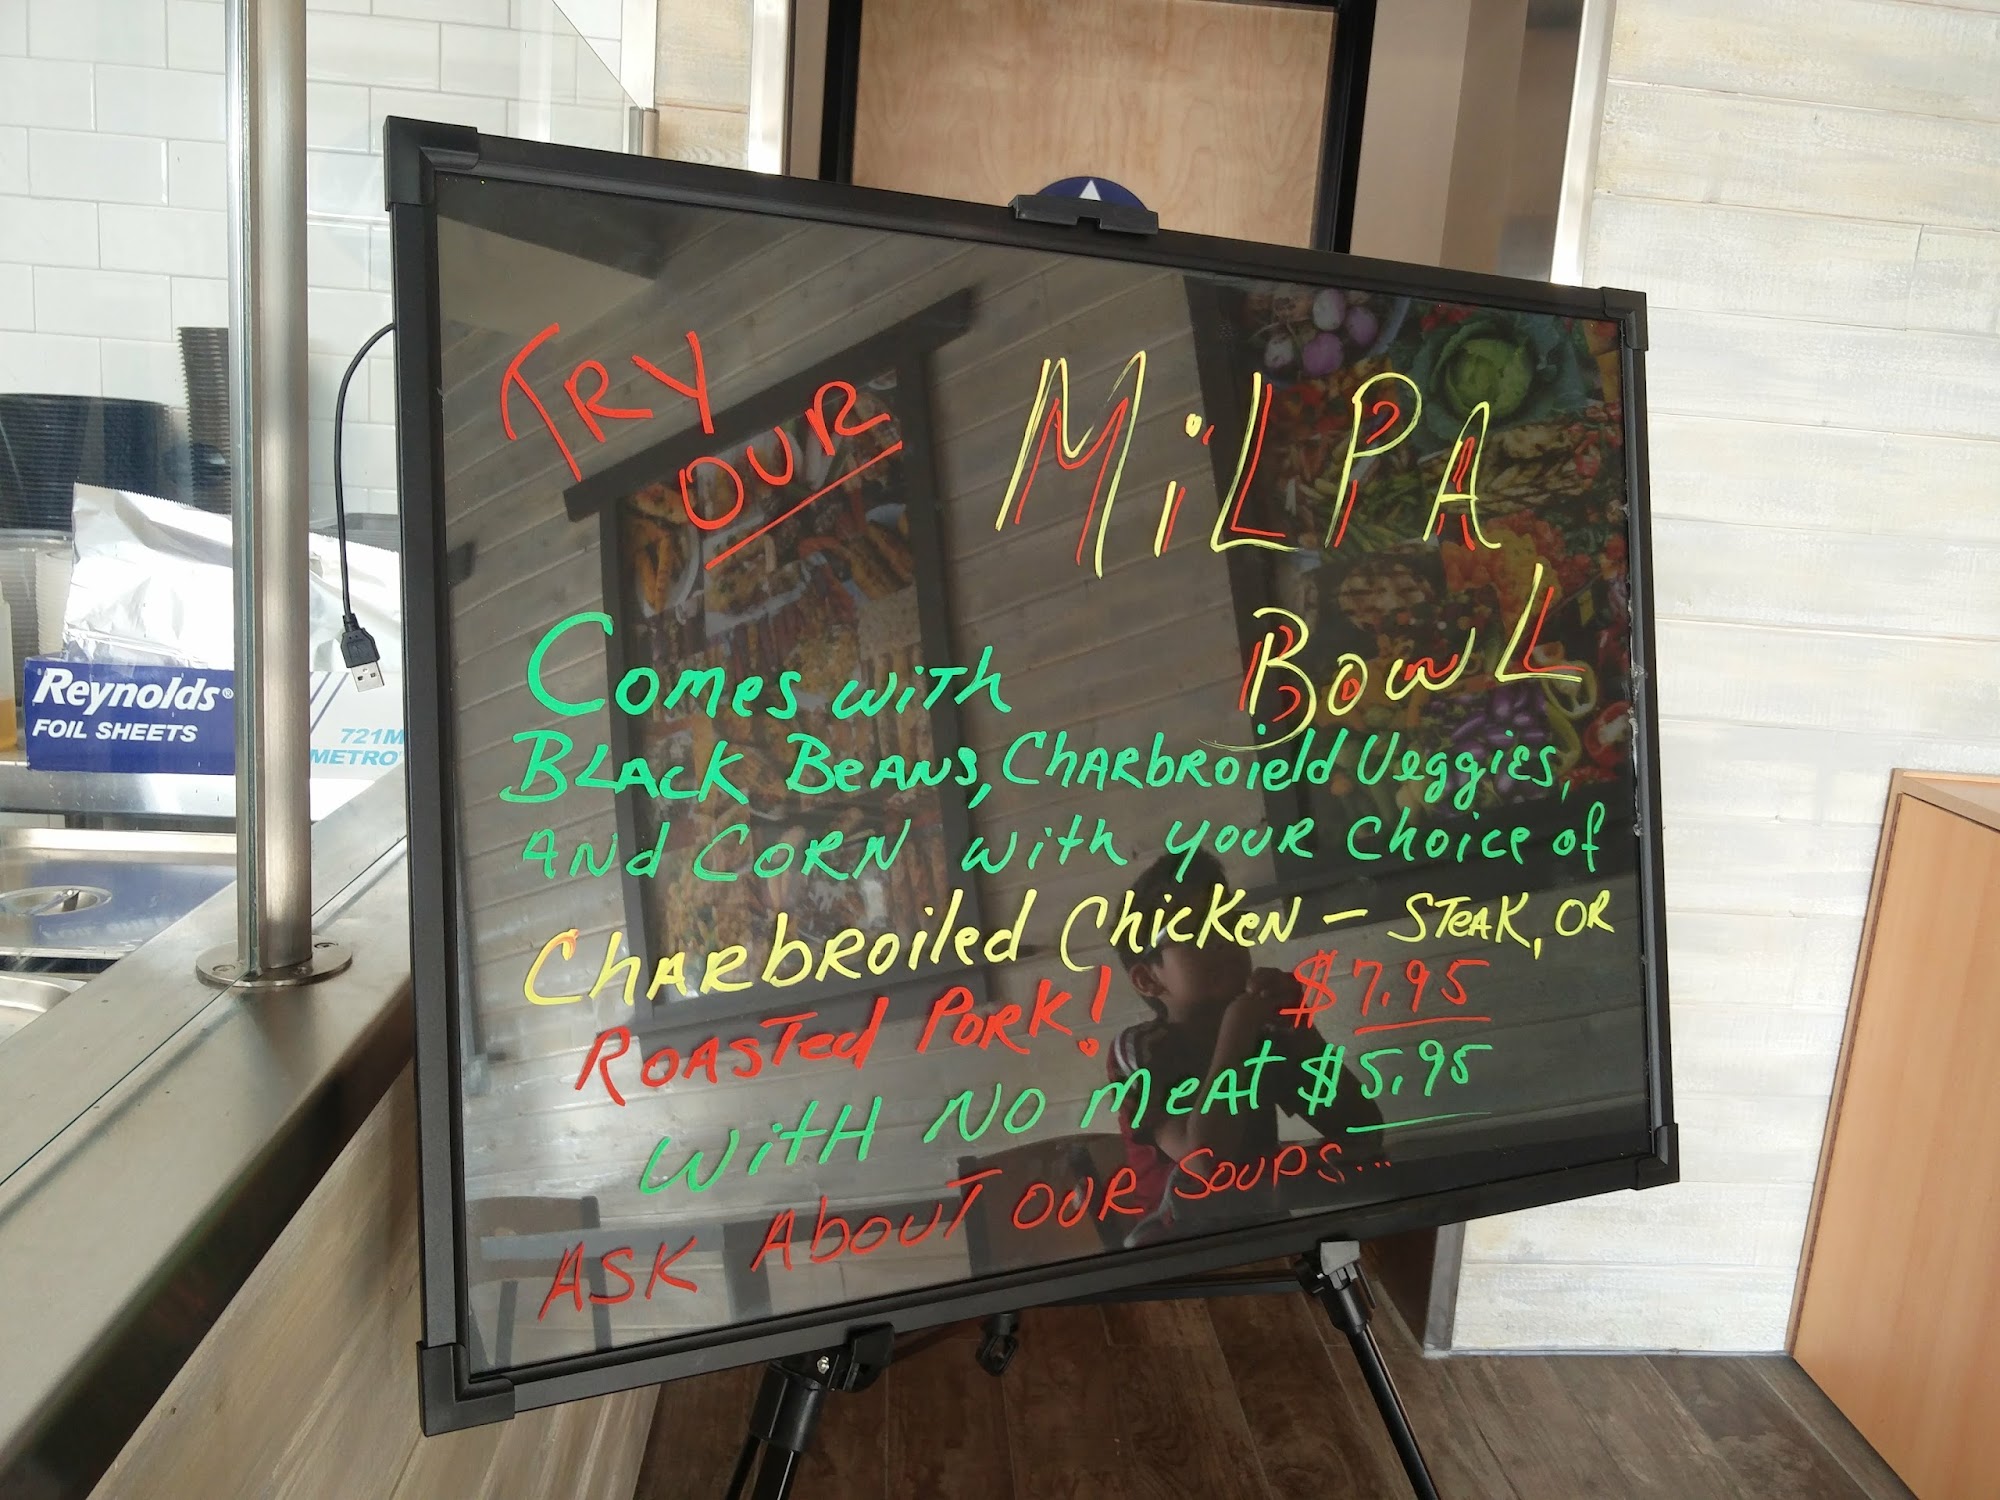 TRY
OUR
MiLPA
BOWL
COMES WITH
BLACK BEANS, CHARbROiEld Veggies,
AND CORN with YOUR Choice of
CHARbROiled Chicken - STEAK, OR
ROASTed PORK! $7.95
WiTH NO MEAT $5.95
ASK AbOUT OUR SOUPS...
Reynolds®
FOIL SHEETS
721M
METRO